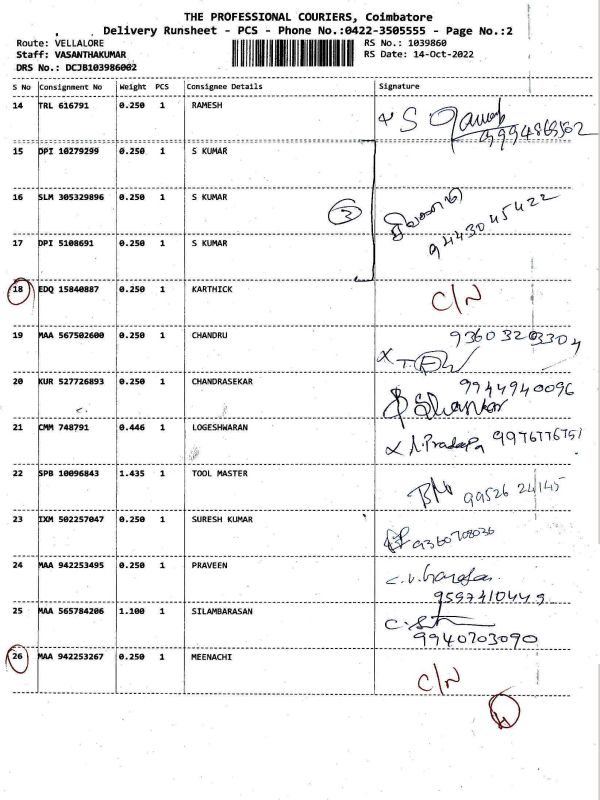 THE PROFESSIONAL COURIERS, Coimbatore
Delivery Runsheet - PCS - Phone No.:0422-3505555 - Page No.:2
Route: VELLALORE RS No.: 1039860
Staff: VASANTHAKUMAR RS Date: 14-Oct-2022
DRS No.: DCJB103986002
S No Consignment No Weight PCS Consignee Details Signature
14 TRL 616791 0.250 1 RAMESH
15 DPI 10279299 0.250 1 S KUMAR
16 SLM 305329896 0.250 1 S KUMAR 3
9443045422
17 DPI 5108691 0.250 1 S KUMAR
18 EDQ 15840887 0.250 1 KARTHICK C/N
19 MAA 567502600 0.250 1 CHANDRU
20 KUR 527726893 0.250 1 CHANDRASEKAR 9944940096
Shankar
21 CMM 748791 0.446 1 LOGESHWARAN
22 SPB 10096843 1.435 1 TOOL MASTER 99526 24145
23 IXM 502257047 0.250 1 SURESH KUMAR 9360708036
24 MAA 942253495 0.250 1 PRAVEEN
9597410449
25 MAA 565784206 1.100 1 SILAMBARASAN
9940703090
26 MAA 942253267 0.250 1 MEENACHI C/N